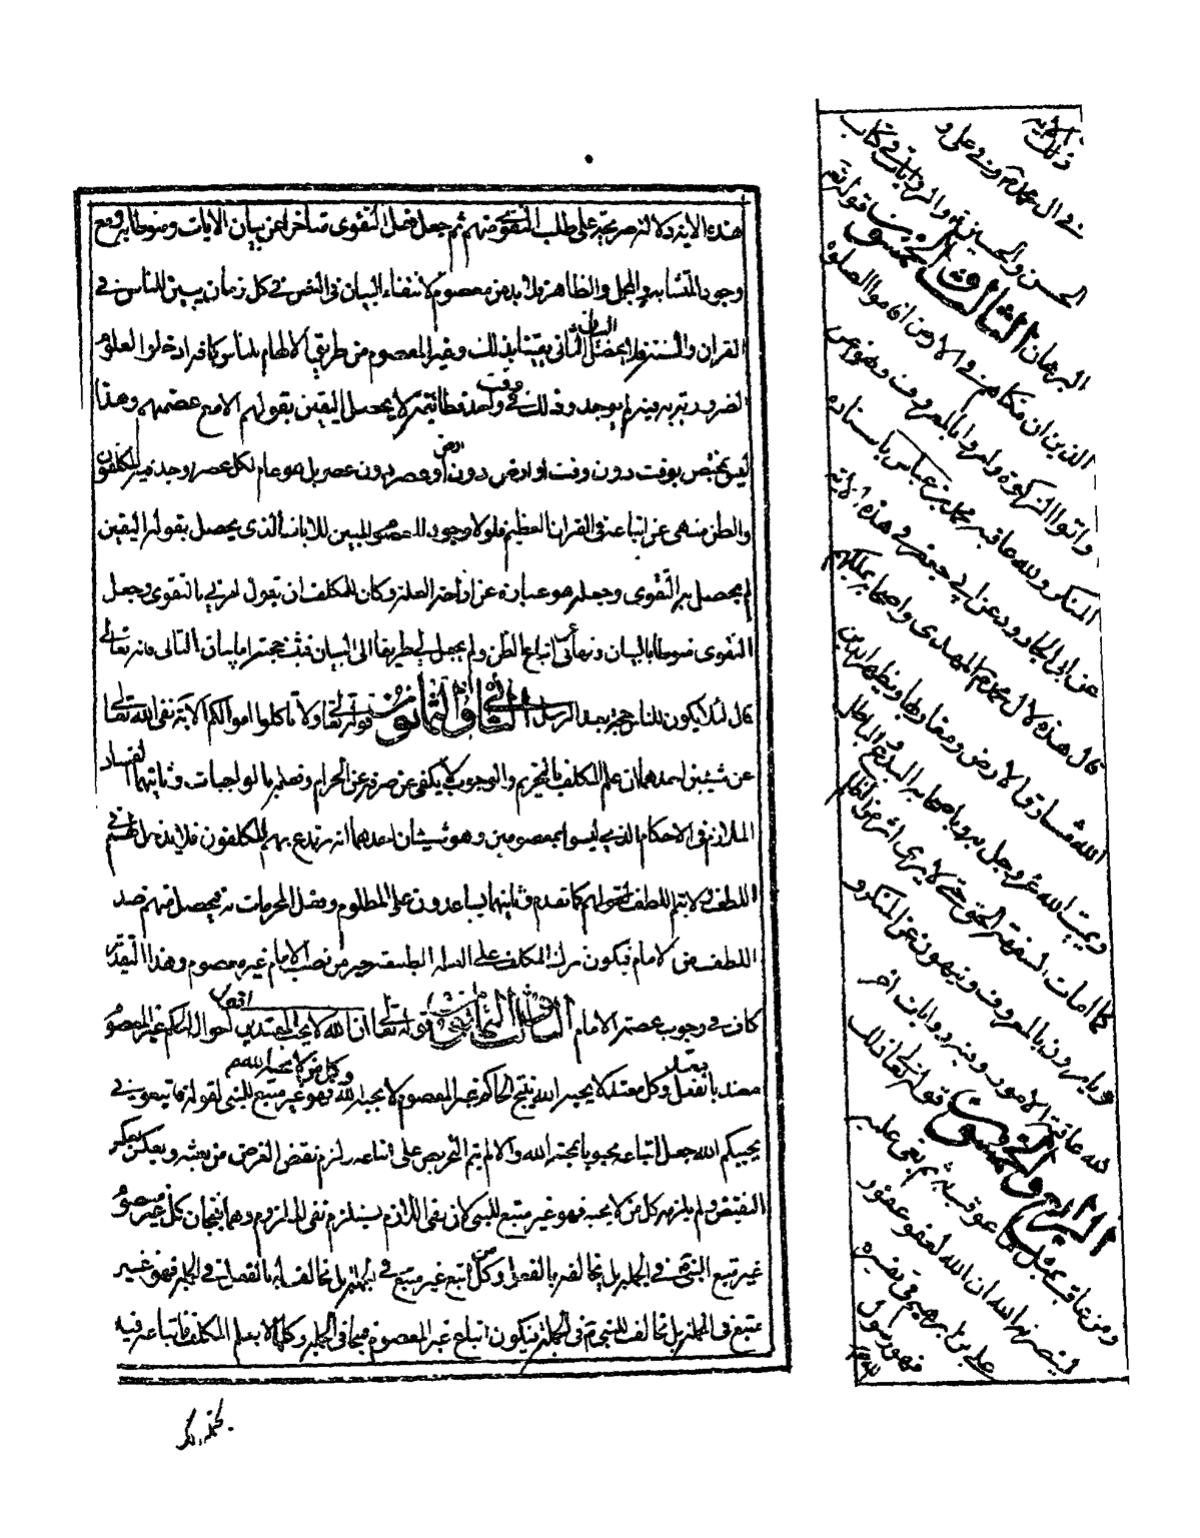 هذه الاية دلالة صريحة على طلب التقوى منهم ثم جعل فعل التقوى متأخرا عن بيان الايات ومنوطا به ومع
وجود المتشابه والمجمل والظاهر فلا بد من معصوم لانتفاء البيان في النص في كل زمان يبين للناس في
القران والسنة ولا يحصل البيان الثاني يقينا بذلك وغير المعصوم من طريق الالهام للناس كافة ادخلوا العلوم
الضرورية به فيه لم يوجد وذلك في وقت واحد فطائفة لا يحصل اليقين بقولهم الا مع عصمتهم وهذا
ليس يختص بوقت دون وقت او ارض دون ارض او عصر دون عصر بل هو عام لكل عصر وجد فيه المكلفون
والظن منهى عن اتباعه في القران العظيم فلولا وجود المعصوم المبين للايات الذى يحصل بقوله اليقين
لم يحصل به التقوى وجعله هو عبارة عن ازاحة العلة وكان للمكلف ان يقول امرتنى بالتقوى وجعل
التقوى منوطا بالبيان ونهانى عن اتباع الظن ولم يجعل لى طريقا الى البيان فثبت حجته اما بيان التالى فانه تعالى
قال لئلا يكون للناس حجة بعد الرسل الثانى والثمانون قوله تعالى ولا تأكلوا اموالكم الاية نهى الله تعالى
عن شيئين احدهما ان علم المكلف بالتحريم والوجوب لا يكفى عن صرفه عن الحرام وفعله بالواجبات وثانيهما الفساد
اللازم في الاحكام الذين ليسوا بمعصومين وهو شيئان احدهما انه يرتدع بهم المكلفون فلا بد
اللطف ولا يتم اللطف بقولهم كما تقدم وثانيهما يساعدون على المظلوم وفعل المحرمات فيحصل منهم ضد
اللطف من الامام فيكون ترك المكلف على السلطان خير من نصب الامام غير معصوم وهذا التقدير
كاف في وجوب عصمة الامام الثالث والثمانون قوله تعالى ان الله لا يحب المعتدين احوال الحاكم غير المعصوم
معتد بالفعل وكل معتد لا يحبه الله ينتج الحاكم غير المعصوم لا يحبه الله وكل من لا يحبه الله فهو غير متبع للنبى لقوله فاتبعونى
يحببكم الله جعل اتباعه محبوبا بمحبة الله والا لم يتم التحريص على اتباعه ولزم نقض الغرض من بعثه وبعكس
النقيض ولم يلزم كل من لا يحبه فهو غير متبع للنبى لان نفى اللازم يستلزم نفى الملزوم وهما ينتجان كل غير معصوم
غير متبع النبى في الجملة بل يخالفه بالفعل وكل من اتبع غير متبع في الجملة بل يخالف له بالفعل في الجملة فهو غير
متبع في الجملة بل مخالف للنبى في الجملة فيكون اتباع غير المعصوم قبيحا في الجملة وكلما لا يعلم المكلف اتباعه فيه
ذلك الاية
في ال محمد وفي على و
الحسن والحسين والروايات في كتاب
البرهان الثالث والخمسون قوله تعالى
الذين ان مكناهم في الارض اقاموا الصلوة
واتوا الزكوة وامروا بالمعروف ونهوا عن
المنكر ولله عاقبة محمد بن عباس باسناده
عن ابى الجارود عن ابى جعفر في هذه الاية
قال هذه لال محمد المهدى واصحابه يملكهم
الله مشارق الارض ومغاربها ويظهر الدين
ويميت الله عز وجل به وباصحابه البدع الباطل
كما امات السفهة الحق حتى لا يرى اثر من الظلم
ويامرون بالمعروف وينهون عن المنكر و
لله عاقبة الامور وفيه روايات اخر
الرابع والخمسون قوله تعالى ذلك
ومن عاقب بمثل ما عوقب به ثم بغى عليه
لينصرنه الله ان الله لعفو غفور
على بن ابرهيم في تفسيره
فهو رسول
الله